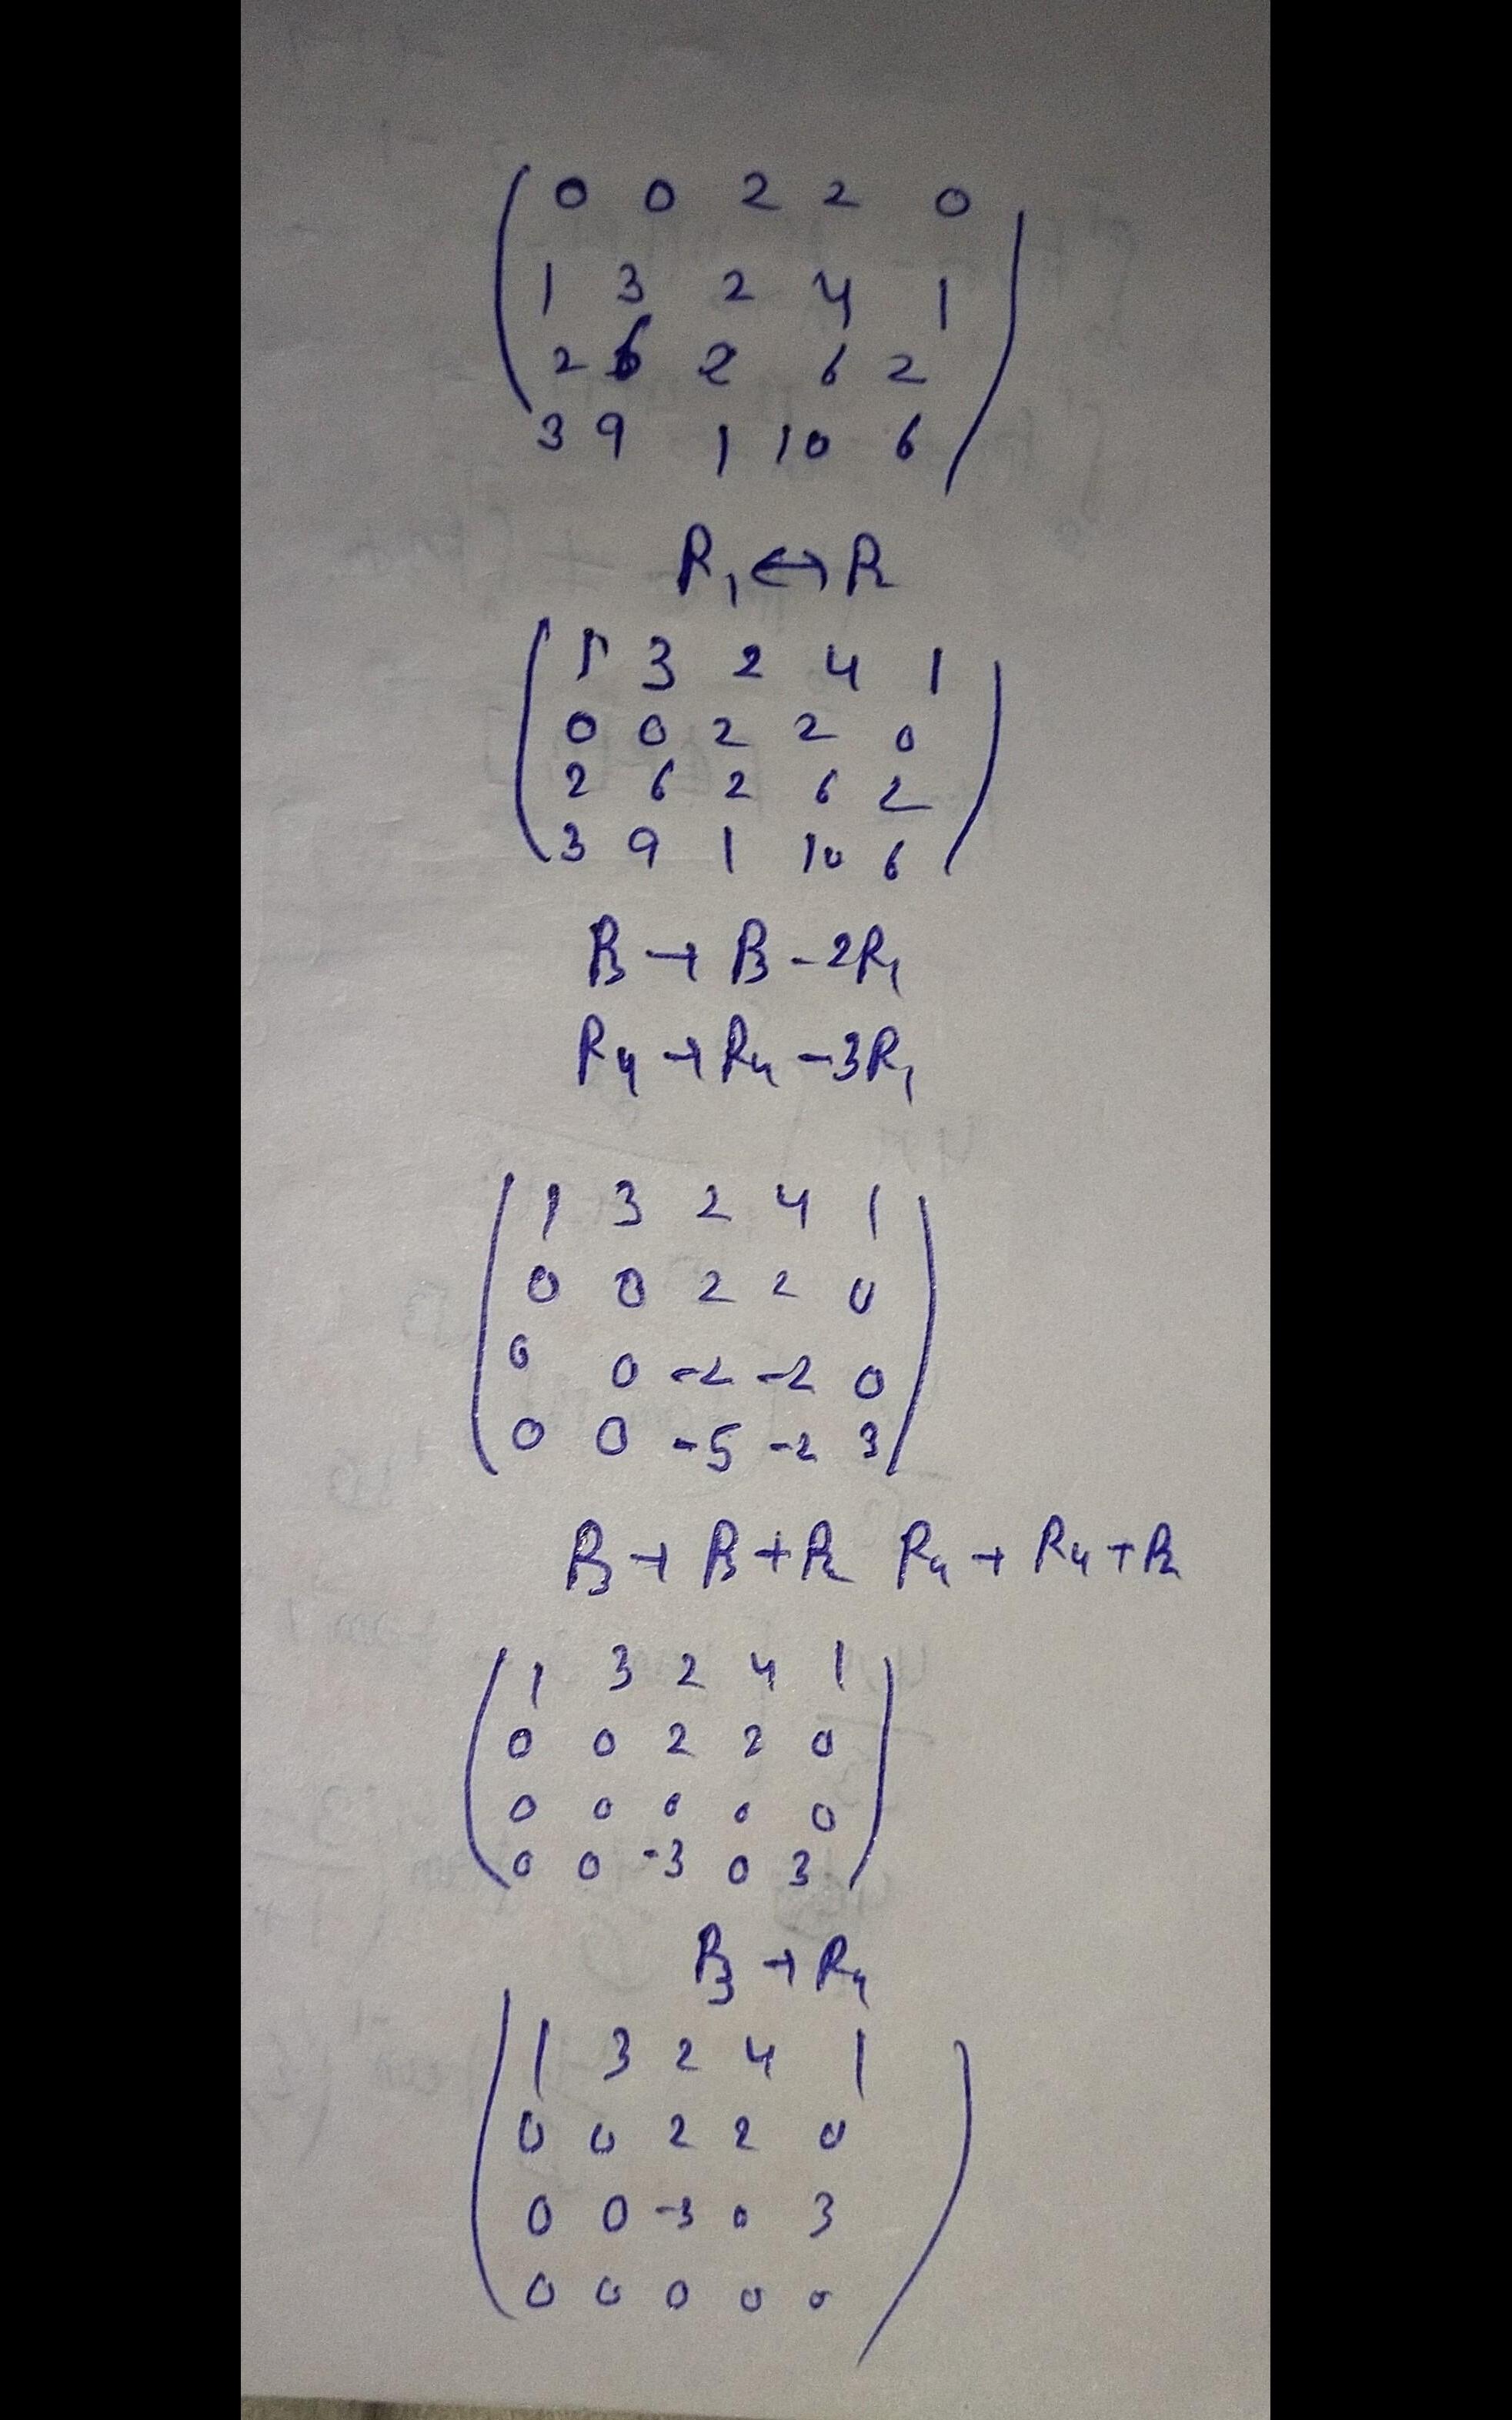 0 0 2 2 0
1 3 2 4 1
2 6 2 6 2
3 9 1 10 6
R₁ ↔ R₂
1 3 2 4 1
0 0 2 2 0
2 6 2 6 2
3 9 1 10 6
R₃ → R₃ - 2R₁
R₄ → R₄ - 3R₁
1 3 2 4 1
0 0 2 2 0
0 0 -2 -2 0
0 0 -5 -2 3
R₃ → R₃ + R₂ R₄ → R₄ + R₂
1 3 2 4 1
0 0 2 2 0
0 0 0 0 0
0 0 -3 0 3
R₃ → R₄
1 3 2 4 1
0 0 2 2 0
0 0 -3 0 3
0 0 0 0 0